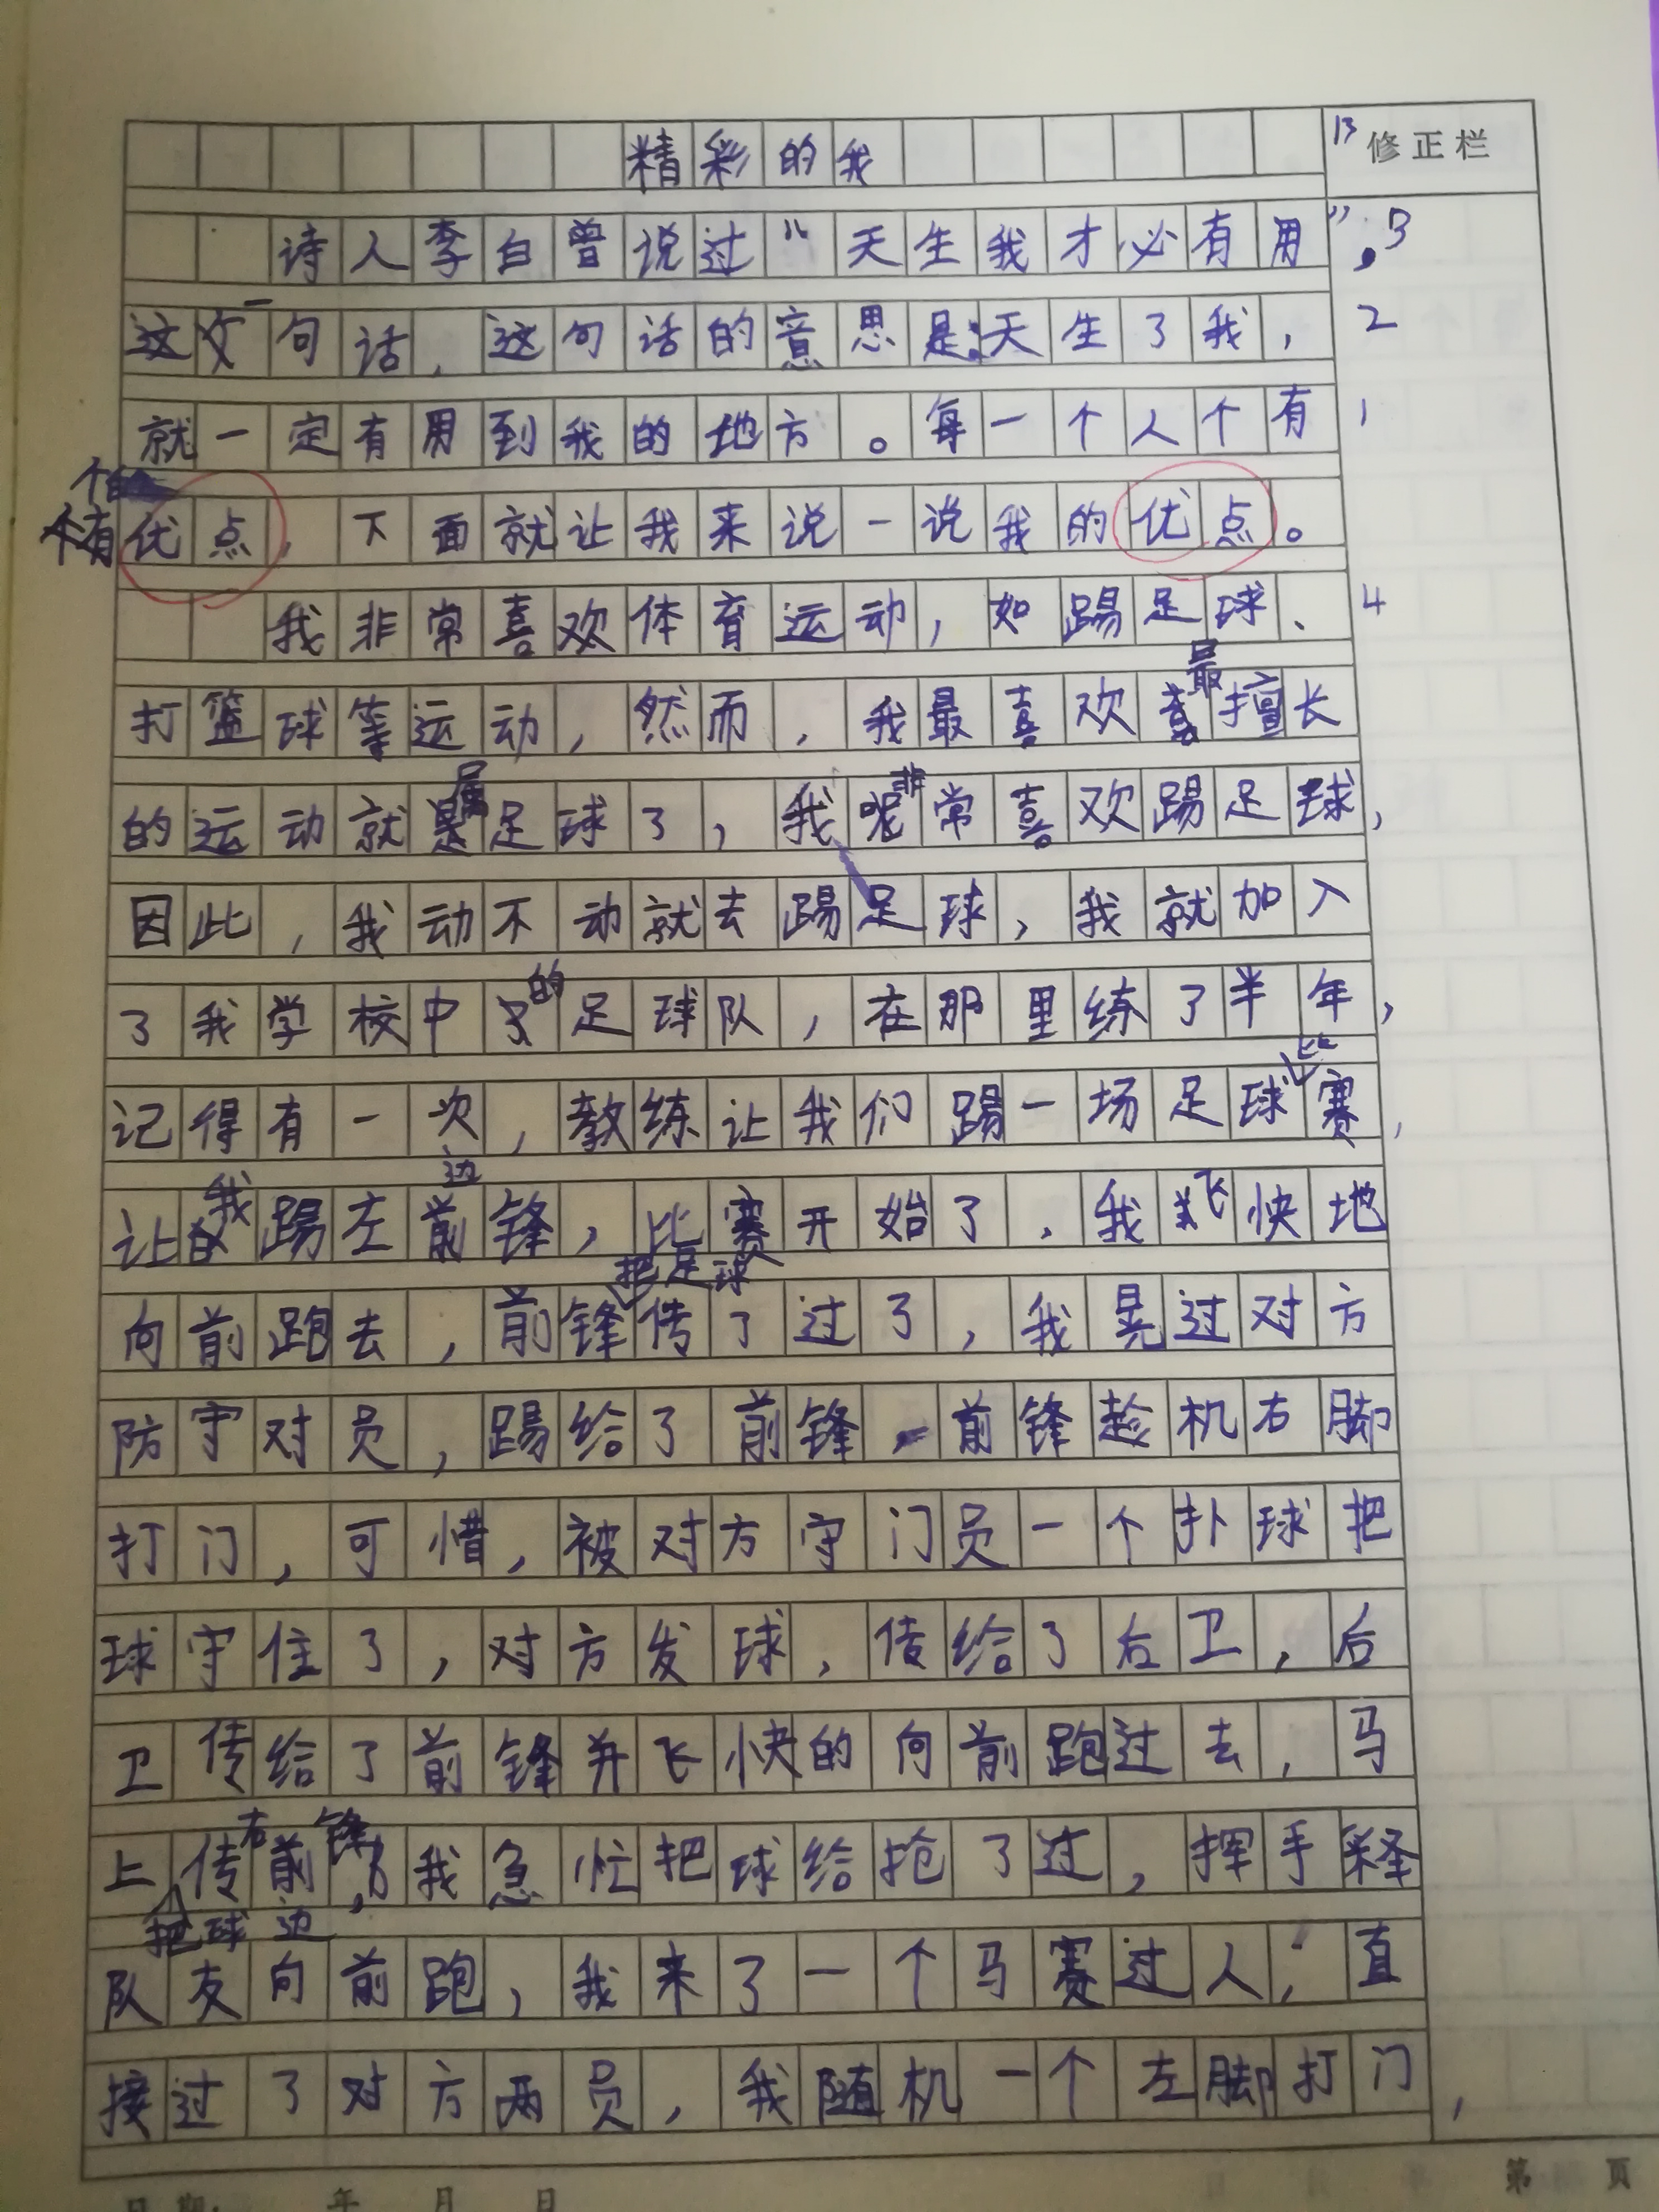 精彩的我
13 修正栏
诗人李白曾说过“天生我才必有用”, 3
这一句话，这句话的意思是:天生了我， 2
就一定有用到我的地方。每一个人个有 1
个有优点，下面就让我来说一说我的优点。
我非常喜欢体育运动，如踢足球、 4
打篮球等运动，然而，我最喜欢最擅长
的运动就属足球了，我非常喜欢踢足球，
因此，我动不动就去踢足球，我就加入
了我学校中的足球队，在那里练了半年，
记得有一次，教练让我们踢一场足球比赛，
让我踢左边前锋，比赛开始了，我飞快地
向前跑去，前锋把足球传了过了，我晃过对方
防守对员，踢给了前锋，前锋趁机右脚
打门，可惜，被对方守门员一个扑球把
球守住了，对方发球，传给了右卫，后
卫传给了前锋并飞快的向前跑过去，马
上把球传右边前锋，我急忙把球给抢了过，挥手释
队友向前跑，我来了一个马赛过人，直
接过了对方两员，我随机一个左脚打门，
日期: 年 月 日 第 页